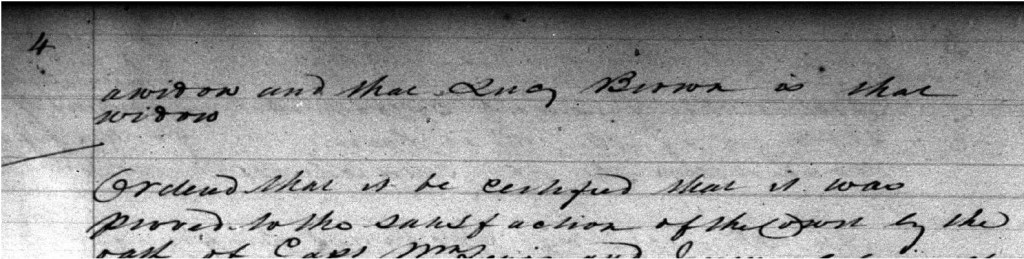 4
a widow and that Lucy Brown is that
widow
Ordered that it be certified that it was
proved to the satisfaction of the Court by the
oath of Capt Wm and